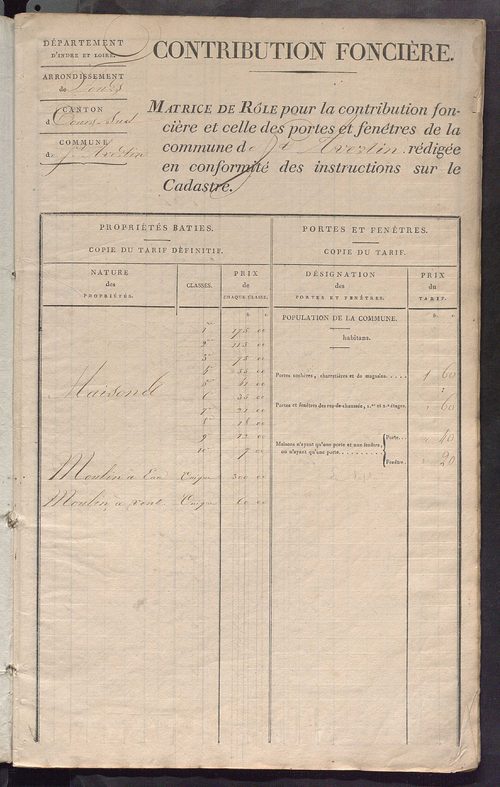 DÉPARTEMENT
D'INDRE ET LOIRE.
ARRONDISSEMENT
de Tours
CANTON
d Tours-Sud
COMMUNE
de St Avertin
CONTRIBUTION FONCIÈRE.
MATRICE DE RÔLE pour la contribution fon-
cière et celle des portes et fenêtres de la
commune d St Avertin rédigée
en conformité des instructions sur le
Cadastre.
PROPRIÉTÉS BATIES.
COPIE DU TARIF DÉFINITIF.
NATURE
des
PROPRIÉTÉS.
CLASSES.
PRIX
de
CHAQUE CLASSE.
1re 175 00
2e 115 00
3e 75 00
4e 55 00
Maisons
7e 21 00
8 18 00
9 12 00
10 7 00
Moulin à Eau Unique 300 00
Moulin à vent Unique 60 00
PORTES ET FENÊTRES.
COPIE DU TARIF.
DÉSIGNATION
des
PORTES ET FENÊTRES.
PRIX
du
TARIF.
f. c.
POPULATION DE LA COMMUNE.
habitans.
Portes cochères, charretières et de magasins..... 1 60
Portes et fenêtres des rez-de-chaussée, 1.er et 2.e étages. 60
Maisons n'ayant qu'une porte et une fenêtre,
ou n'ayant qu'une porte.......
Porte... 40
Fenêtre. 20